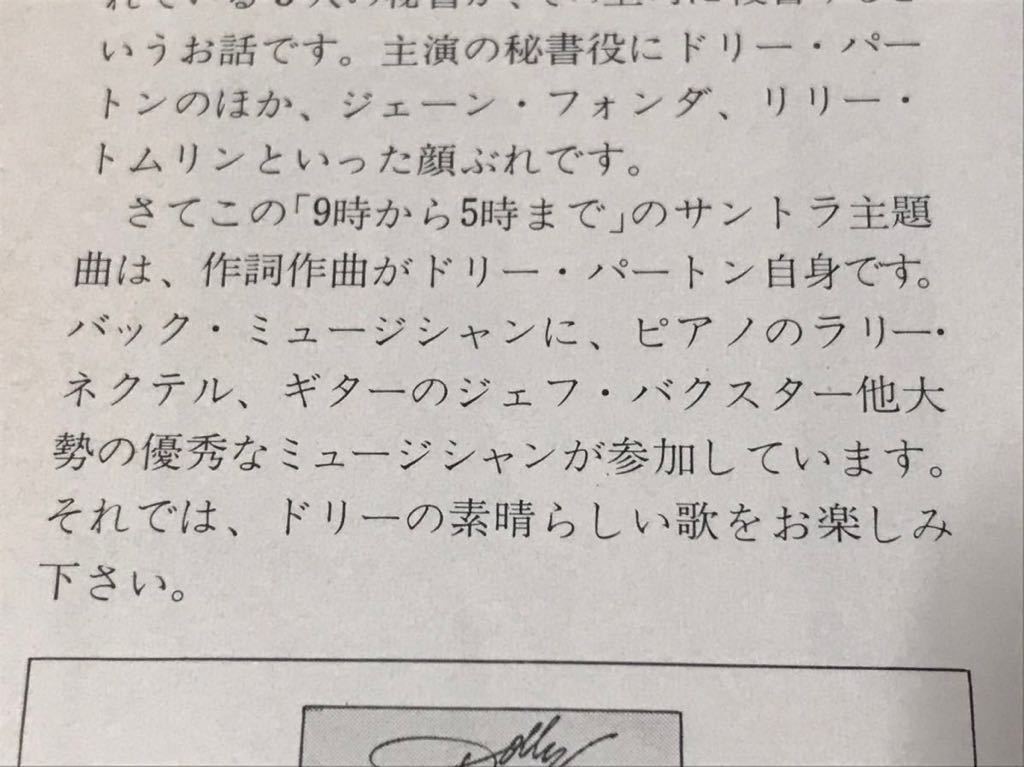 いうお話です。主演の秘書役にドリー・パー
トンのほか、ジェーン・フォンダ、リリー・
トムリンといった顔ぶれです。
さてこの「9時から5時まで」のサントラ主題
曲は、作詞作曲がドリー・パートン自身です。
バック・ミュージシャンに、ピアノのラリー・
ネクテル、ギターのジェフ・バクスター他大
勢の優秀なミュージシャンが参加しています。
それでは、ドリーの素晴らしい歌をお楽しみ
下さい。
Dolly